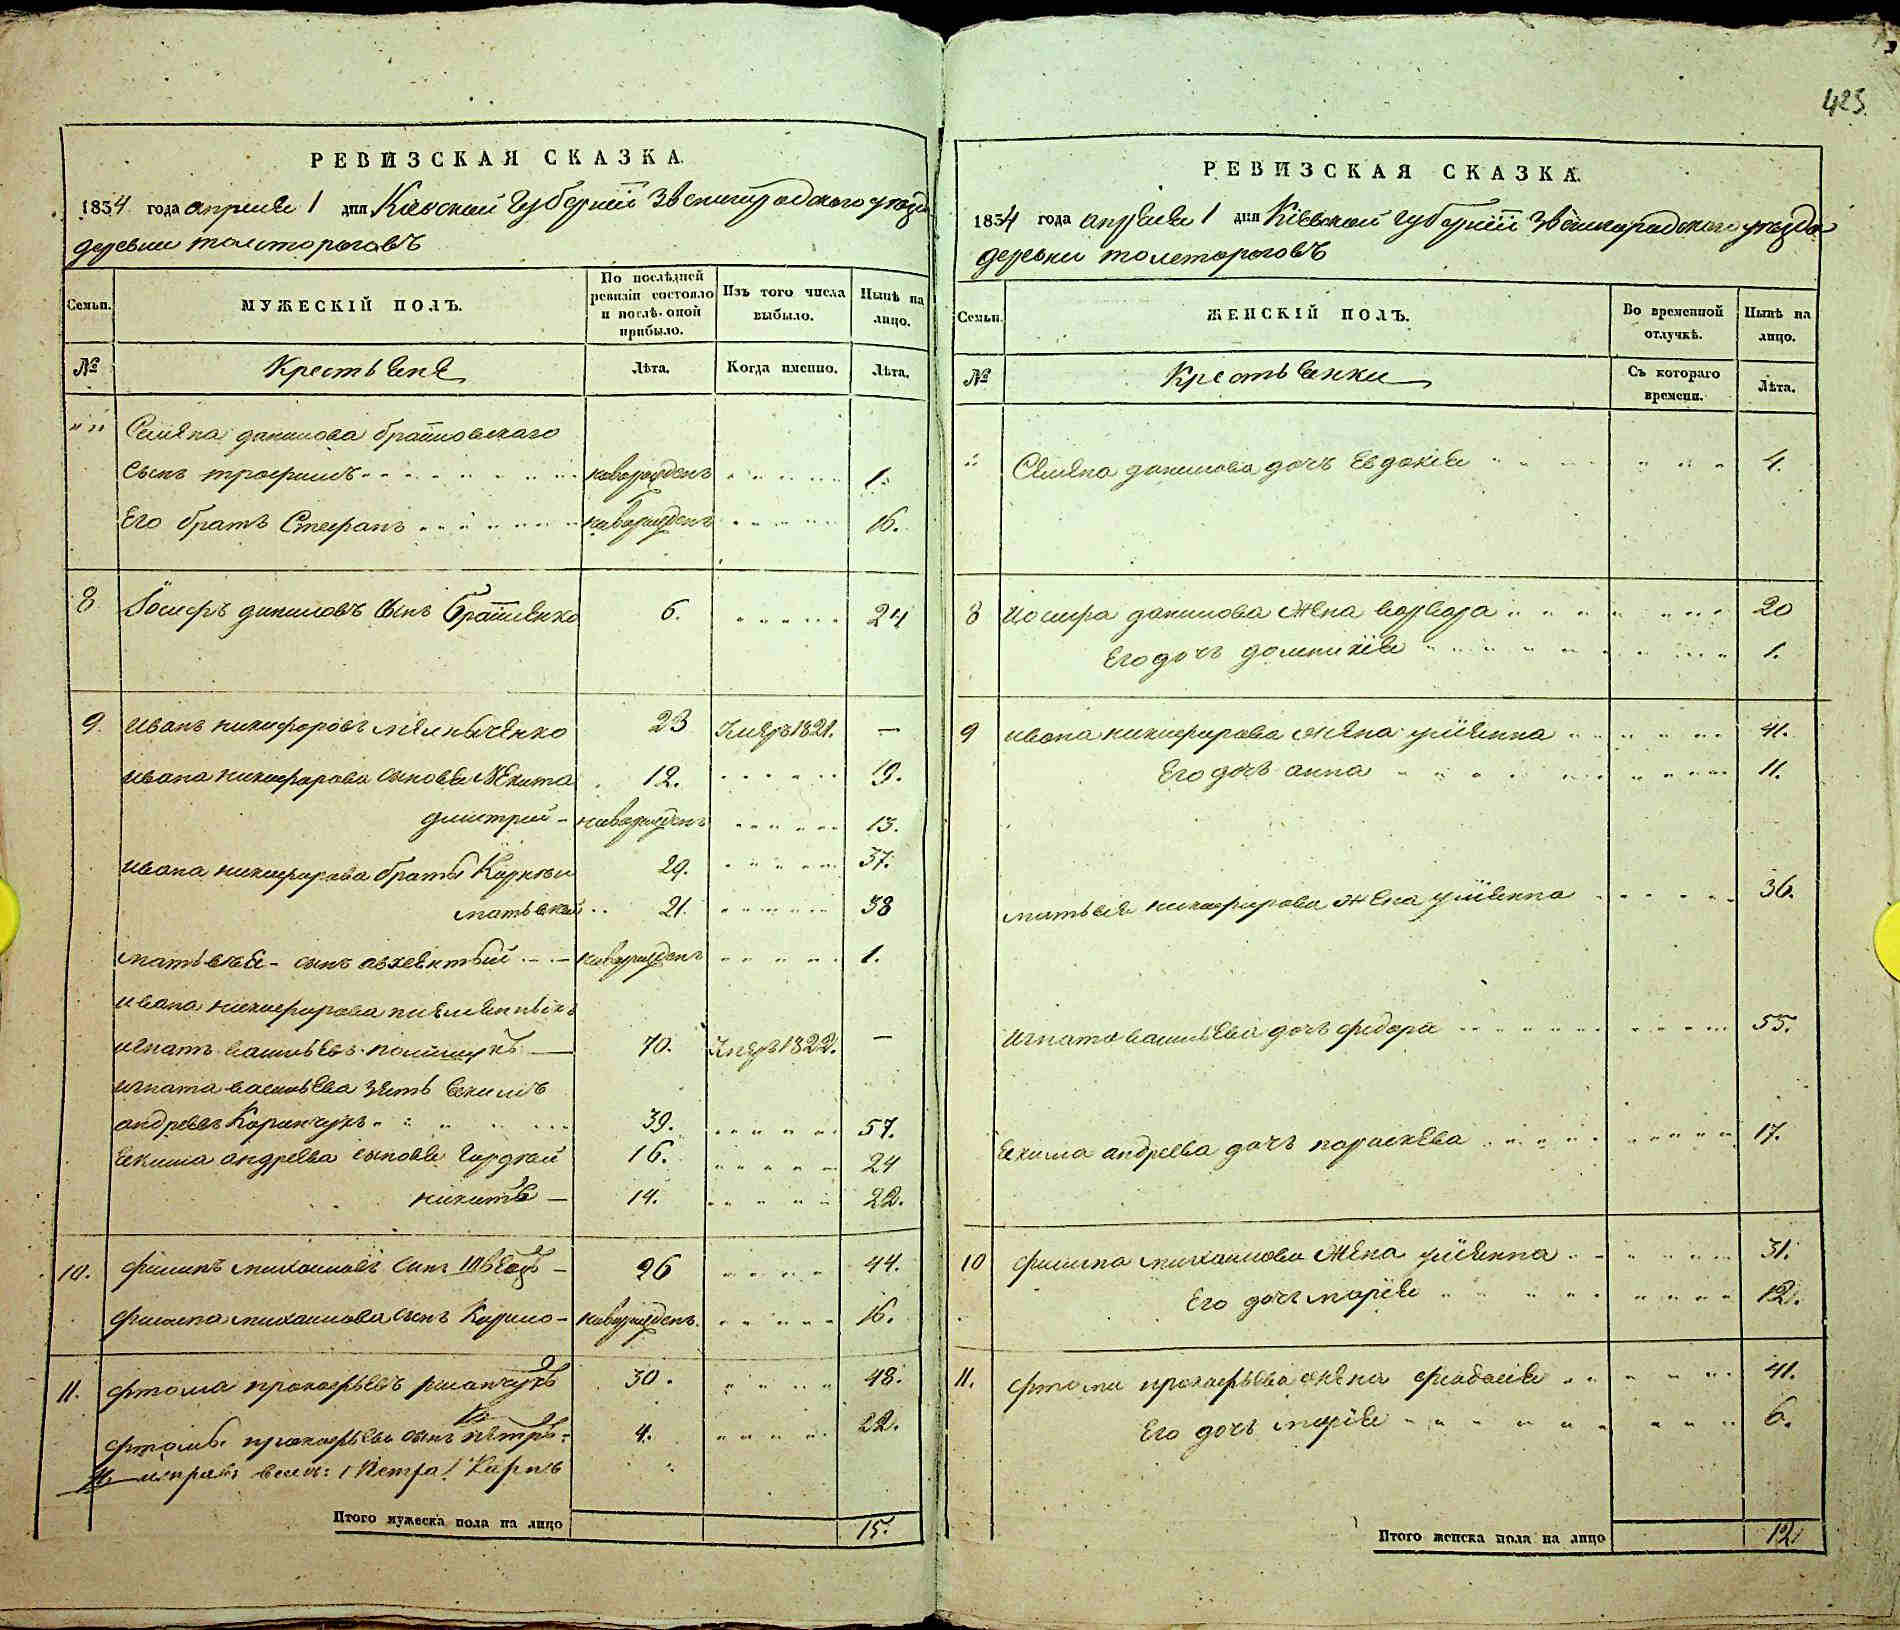 423.
РЕВИЗСКАЯ СКАЗКА.
1834 года апреля 1 дня Киевской Губернии Звенигородскаго уезда
деревни толсторогов
Семьи.
МУЖЕСКІЙ ПОЛЪ.
По послѣдней ревизіи состояло и послѣ оной прибыло.
Изъ того числа выбыло.
Нынѣ на лицо.
№
Крестьяне
Лѣта.
Когда именно.
Лѣта.
Семена данилова
сынъ трофимъ новорожденъ 1.
Его братъ Стефанъ новорожденъ 16.
8 Іосифъ даниловъ сынъ 6. 24
9. Иванъ никифоровъ 23 Умеръ 1821. —
ивана никифорова сыновья Никита 12. 19.
дмитрий — новорожденъ 13.
ивана никифорова братья 29. 37.
матвей 21. 38
матвея сынъ новорожденъ 1.
ивана никифорова
игнатъ васильевъ — 70. Умеръ 1822. —
игната васильева зять Екимъ
андреевъ 39. 57.
Екима андреева сыновья Гордей 16. 24
никита — 14. 22.
10. филипъ михайловъ сынъ Швецъ — 26 44.
филипа михайлова сынъ Кирило — новорожденъ. 16.
11. фтома прокофьевъ 30. 48.
фтомы прокофьева сынъ петръ 4. 22.
Петра / Карпъ
Итого мужеска пола на лицо 15.
РЕВИЗСКАЯ СКАЗКА.
1834 года апреля 1 дня Кіевской губерніи Звенигородскаго уезда
деревни толсторогов
Семьи.
ЖЕНСКІЙ ПОЛЪ.
Во временной отлучкѣ.
Нынѣ на лицо.
№
Крестьянки
Съ котораго времени.
Лѣта.
Семена данилова дочь Евдокія 4.
8 Иосифа данилова жена варвара 20
Его дочь 1.
9 ивана никифорова жена улияна 41.
Его дочь анна 11.
матвея никифорова жена улияна 36.
игната васильева дочь федора 55.
Екима андреева дочь параскева 17.
10 филипа михайлова жена улияна 31.
Его дочь марія 12.
11. фтомы прокофьева жена 41.
Его дочь марія 6.
Итого женска пола на лицо 12.